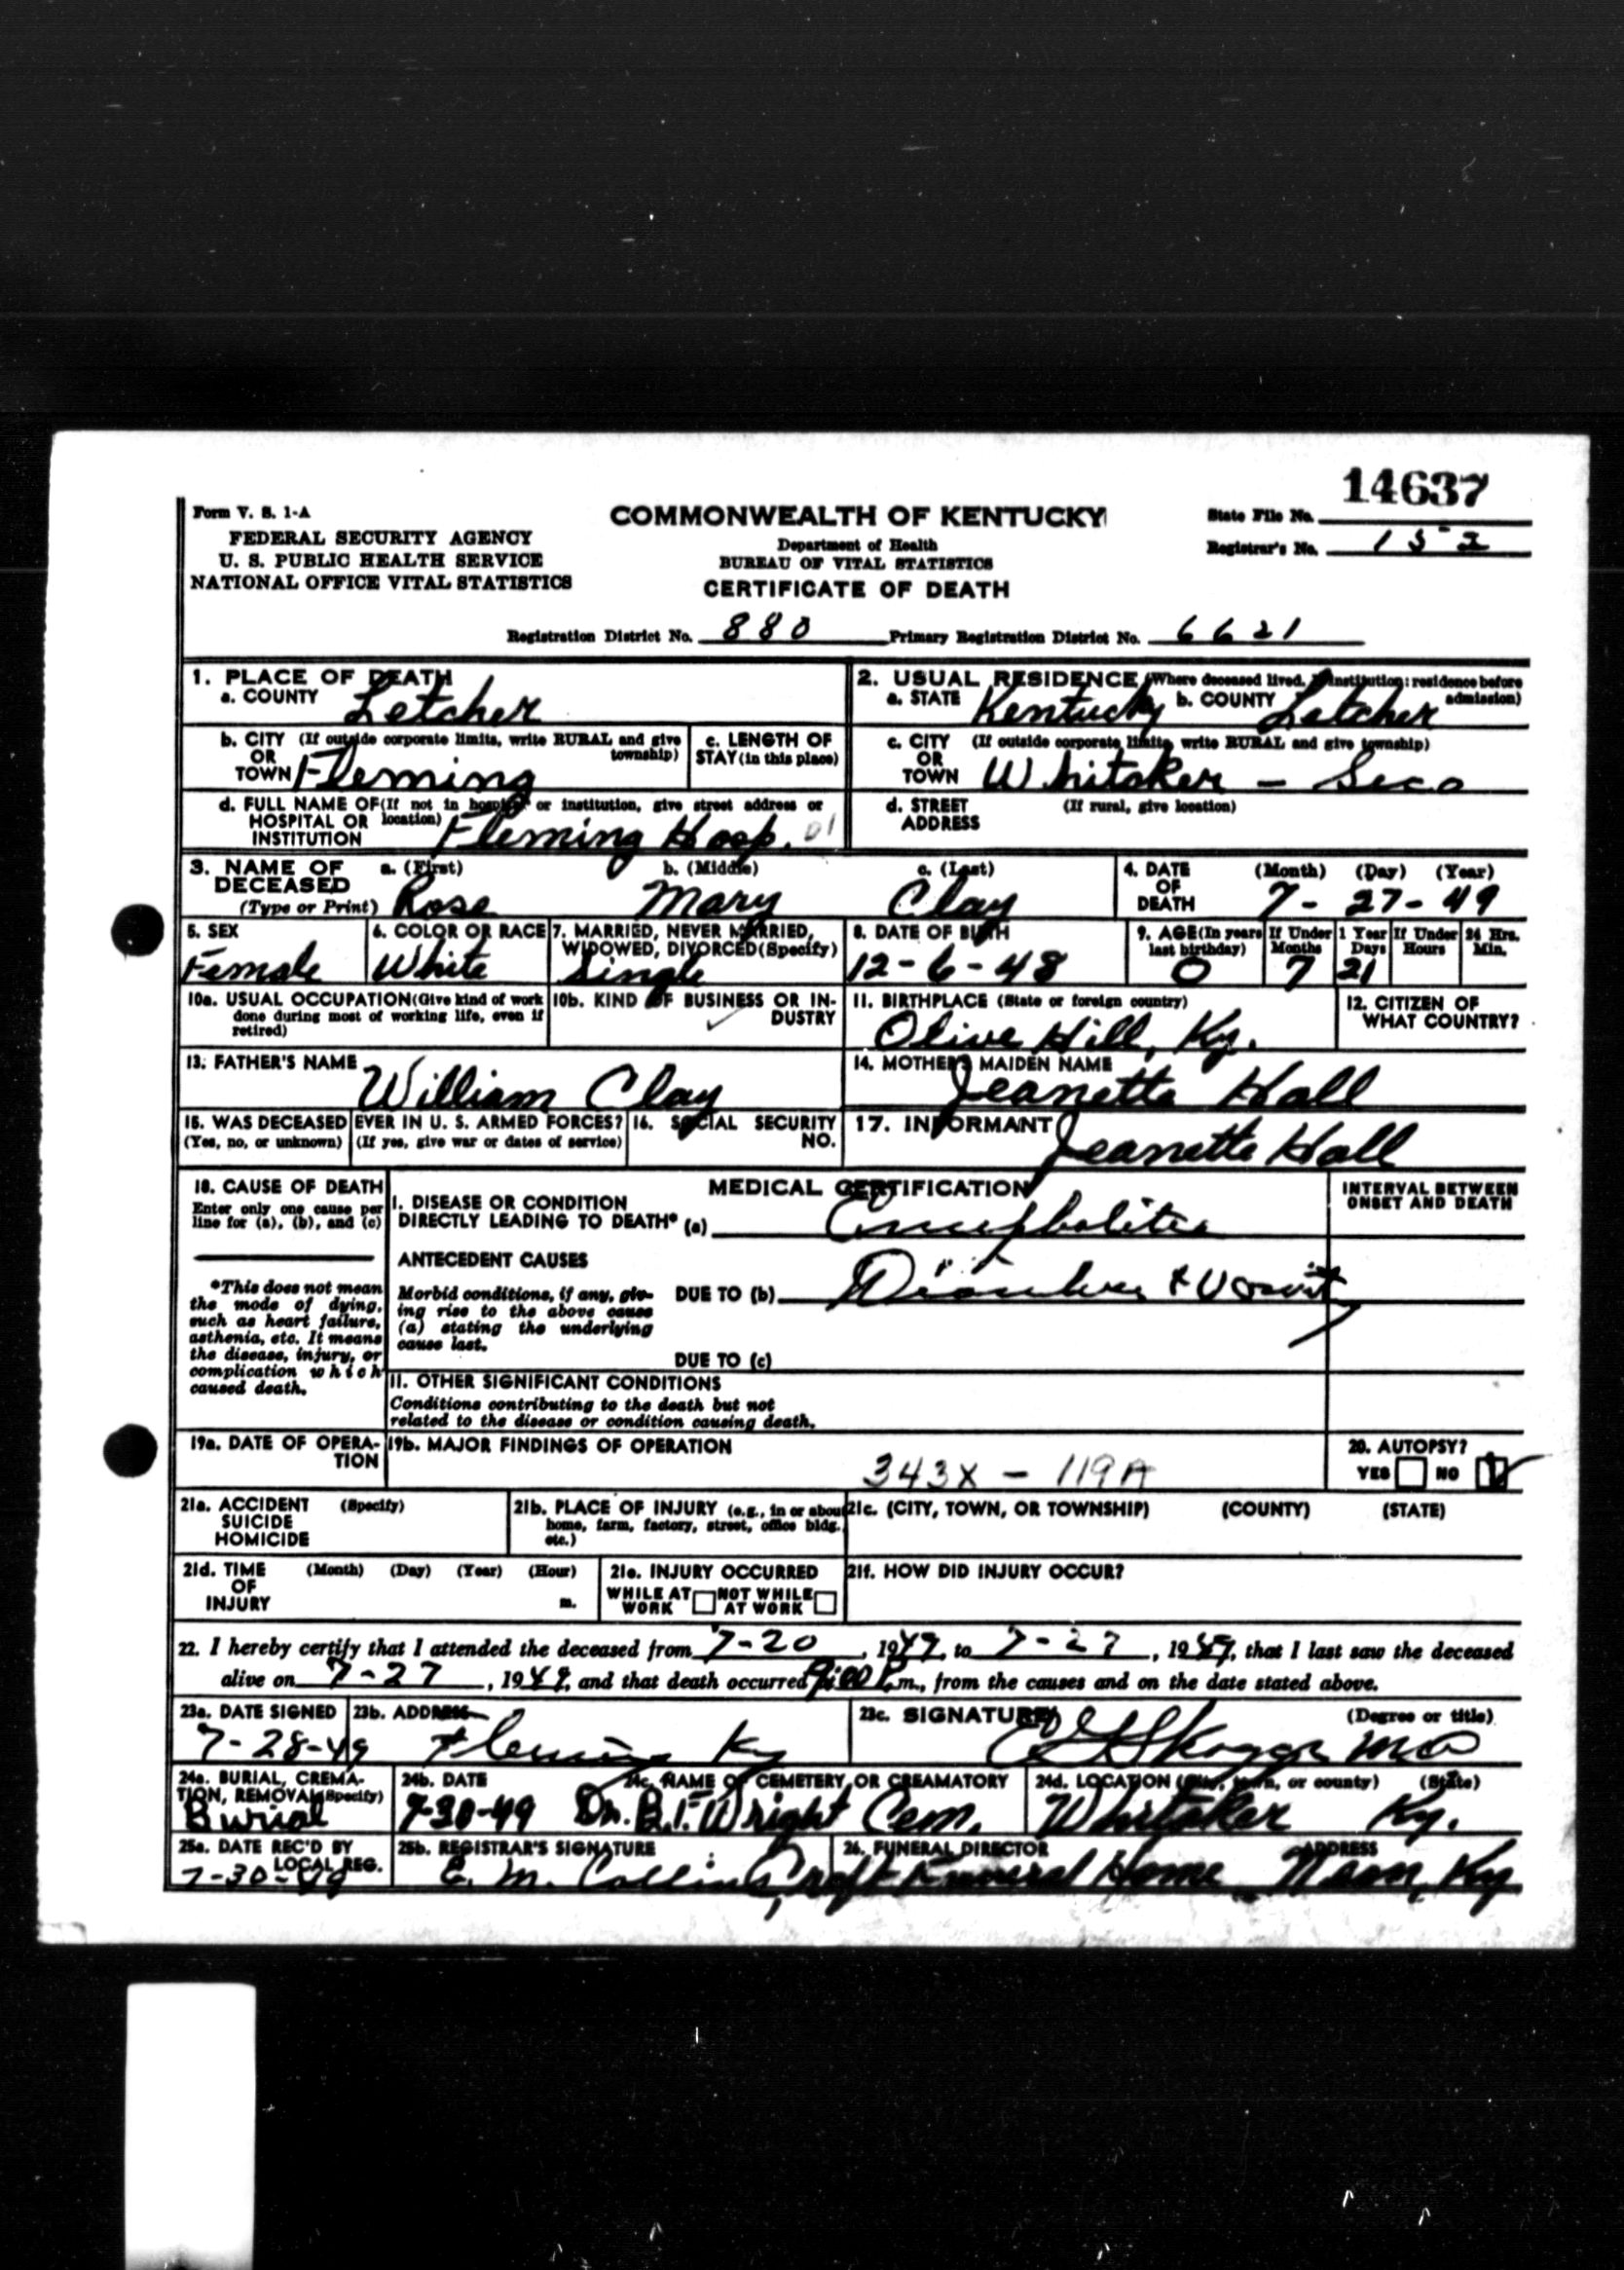 14637
Form V. S. 1-A
FEDERAL SECURITY AGENCY
U. S. PUBLIC HEALTH SERVICE
NATIONAL OFFICE VITAL STATISTICS
COMMONWEALTH OF KENTUCKY
Department of Health
BUREAU OF VITAL STATISTICS
CERTIFICATE OF DEATH
State File No.
Registrar's No. 152
Registration District No. 880 Primary Registration District No. 6621
1. PLACE OF DEATH
a. COUNTY Letcher
2. USUAL RESIDENCE (Where deceased lived. If institution: residence before admission)
a. STATE Kentucky b. COUNTY Letcher
b. CITY (If outside corporate limits, write RURAL and give township)
OR
TOWN Fleming
c. LENGTH OF
STAY (in this place)
c. CITY (If outside corporate limits, write RURAL and give township)
OR
TOWN Whitaker - Seco
d. FULL NAME OF (If not in hospital or institution, give street address or location)
HOSPITAL OR
INSTITUTION Fleming Hosp. 01
d. STREET (If rural, give location)
ADDRESS
3. NAME OF DECEASED (Type or Print)
a. (First) b. (Middle) c. (Last)
Rose Mary Clay
4. DATE OF DEATH (Month) (Day) (Year)
7-27-49
5. SEX
Female
6. COLOR OR RACE
White
7. MARRIED, NEVER MARRIED, WIDOWED, DIVORCED (Specify)
Single
8. DATE OF BIRTH
12-6-48
9. AGE (In years last birthday) If Under 1 Year Months Days If Under 24 Hrs. Hours Min.
0 7 21
10a. USUAL OCCUPATION (Give kind of work done during most of working life, even if retired)
10b. KIND OF BUSINESS OR INDUSTRY
11. BIRTHPLACE (State or foreign country)
Olive Hill, Ky.
12. CITIZEN OF WHAT COUNTRY?
13. FATHER'S NAME
William Clay
14. MOTHER'S MAIDEN NAME
Jeanette Hall
15. WAS DECEASED EVER IN U. S. ARMED FORCES?
(Yes, no, or unknown) (If yes, give war or dates of service)
16. SOCIAL SECURITY NO.
17. INFORMANT
Jeanette Hall
18. CAUSE OF DEATH
Enter only one cause per line for (a), (b), and (c)
*This does not mean the mode of dying, such as heart failure, asthenia, etc. It means the disease, injury, or complication which caused death.
MEDICAL CERTIFICATION
INTERVAL BETWEEN ONSET AND DEATH
I. DISEASE OR CONDITION
DIRECTLY LEADING TO DEATH* (a) Encephalitis
ANTECEDENT CAUSES
Morbid conditions, if any, giving rise to the above cause (a) stating the underlying cause last.
DUE TO (b) Diarrhea & Vomit
DUE TO (c)
II. OTHER SIGNIFICANT CONDITIONS
Conditions contributing to the death but not
related to the disease or condition causing death.
19a. DATE OF OPERATION
19b. MAJOR FINDINGS OF OPERATION
343X - 119A
20. AUTOPSY?
YES NO
21a. ACCIDENT (Specify)
SUICIDE
HOMICIDE
21b. PLACE OF INJURY (e.g., in or about home, farm, factory, street, office bldg. etc.)
21c. (CITY, TOWN, OR TOWNSHIP) (COUNTY) (STATE)
21d. TIME (Month) (Day) (Year) (Hour)
OF
INJURY m.
21e. INJURY OCCURRED
WHILE AT WORK NOT WHILE AT WORK
21f. HOW DID INJURY OCCUR?
22. I hereby certify that I attended the deceased from 7-20, 1949, to 7-27, 1949, that I last saw the deceased
alive on 7-27, 1949, and that death occurred P.m., from the causes and on the date stated above.
23a. DATE SIGNED
7-28-49
23b. ADDRESS
Fleming Ky
23c. SIGNATURE (Degree or title)
Skaggs MD
24a. BURIAL, CREMATION, REMOVAL (Specify)
Burial
24b. DATE
7-30-49
24c. NAME OF CEMETERY OR CREAMATORY
Dr. B.F. Wright Cem.
24d. LOCATION (City, town, or county) (State)
Whitaker Ky.
25a. DATE REC'D BY LOCAL REG.
7-30-49
25b. REGISTRAR'S SIGNATURE
E. M. Collins
26. FUNERAL DIRECTOR ADDRESS
Craft Funeral Home Neon, Ky